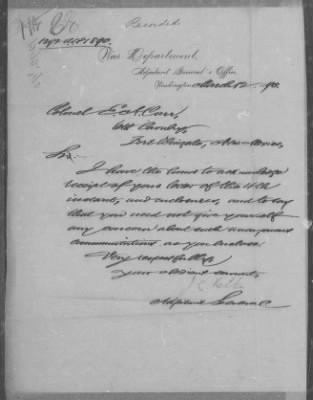 Recorded
War Department,
Adjutant General's Office,
Washington, March 12, 90.
Colonel E. A. Carr,
6th Cavalry,
Fort Wingate, New Mexico.
Sir:
I have the honor to acknowledge
receipt of your letter of the 4th
instant, and enclosures, and to say
that you need not give yourself
any concern about such anonymous
communications as you enclose.
Very respectfully,
Your obedient servant,
J. C. Kelton
Adjutant General.